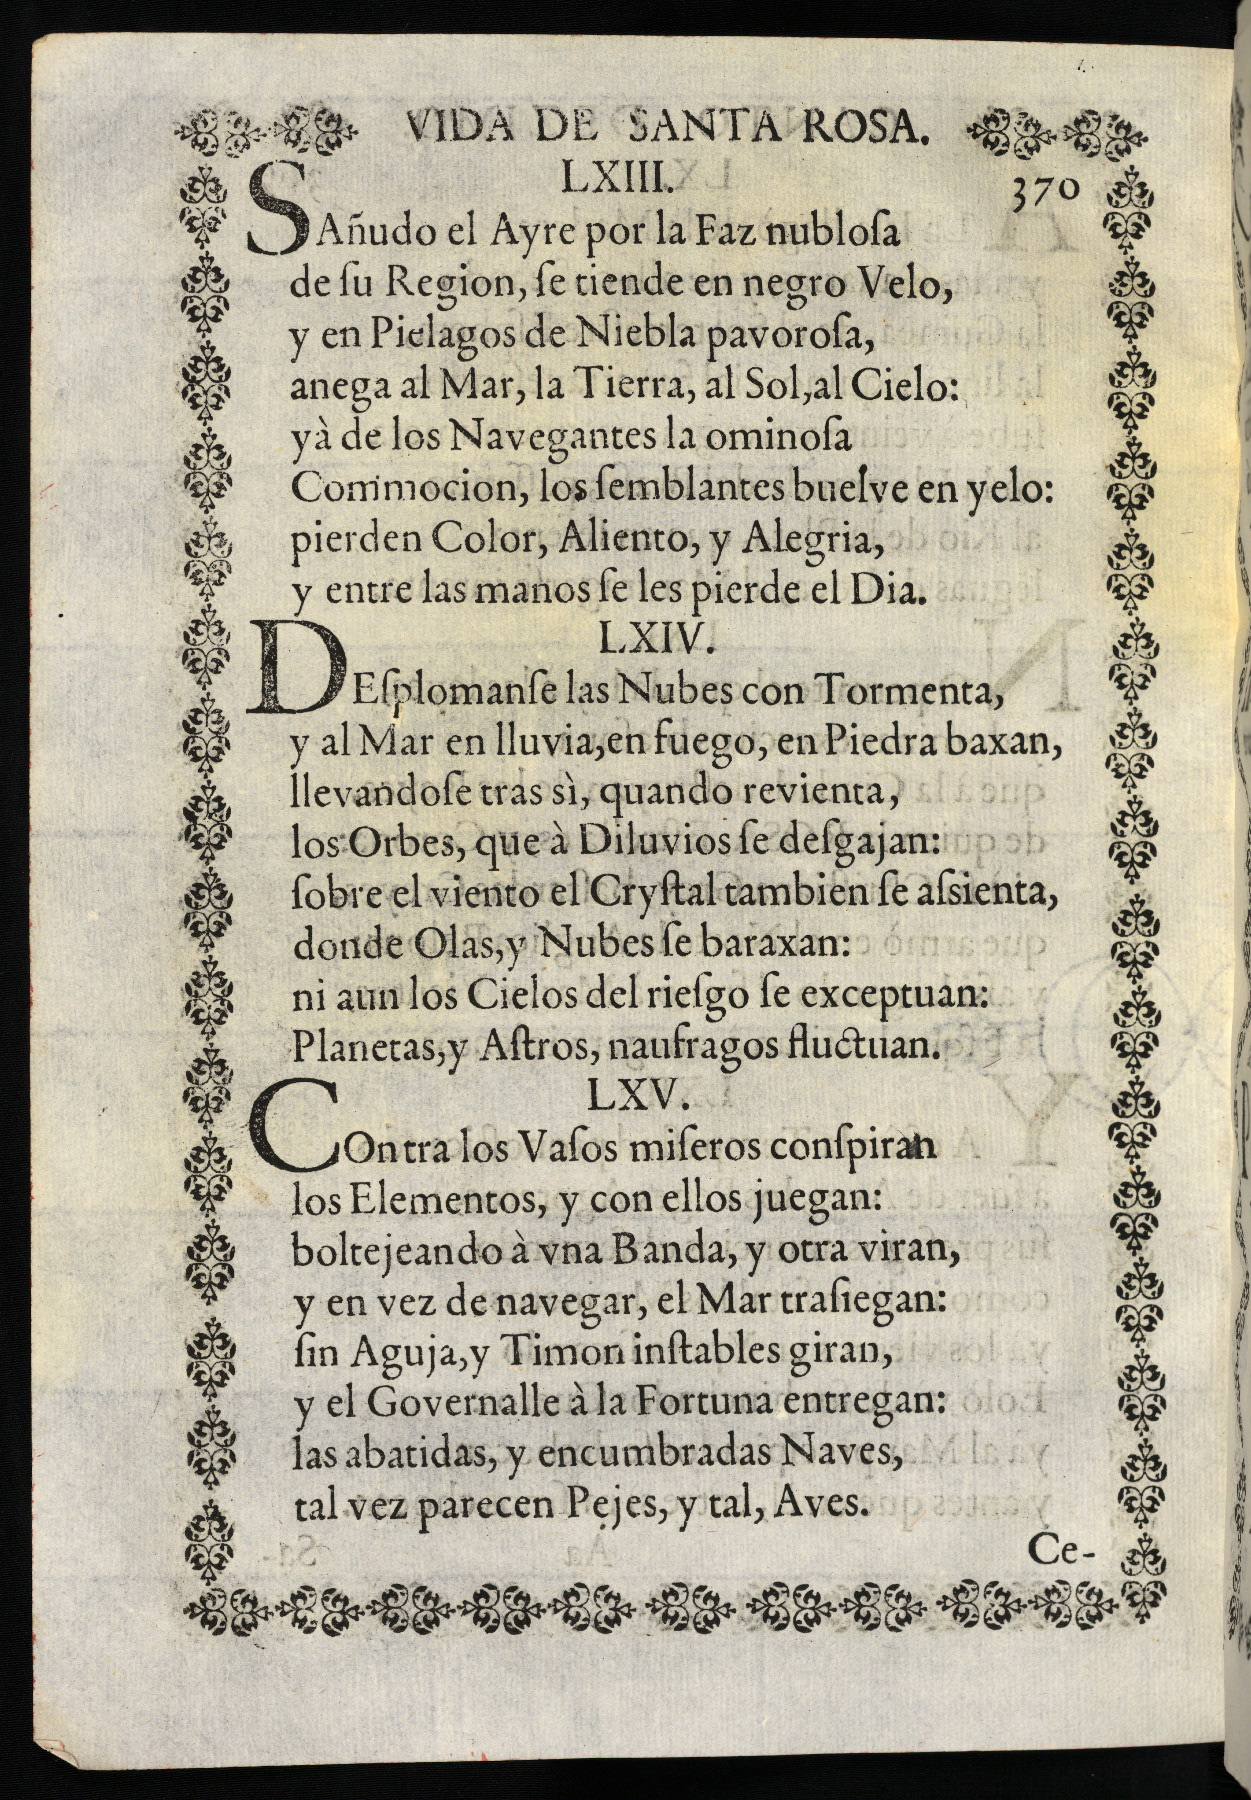 VIDA DE SANTA ROSA.
LXIII.
370
SAñudo el Ayre por la Faz nubloſa
de ſu Region, ſe tiende en negro Velo,
y en Pielagos de Niebla pavoroſa,
anega al Mar, la Tierra, al Sol,al Cielo:
yà de los Navegantes la ominoſa
Commocion, los ſemblantes buelve en yelo:
pierden Color, Aliento, y Alegria,
y entre las manos ſe les pierde el Dia.
LXIV.
DEſplomanſe las Nubes con Tormenta,
y al Mar en lluvia,en fuego, en Piedra baxan,
llevandoſe tras sì, quando revienta,
los Orbes, que à Diluvios ſe deſgajan:
ſobre el viento el Cryſtal tambien ſe aſsienta,
donde Olas,y Nubes ſe baraxan:
ni aun los Cielos del rieſgo ſe exceptuan:
Planetas,y Aſtros, naufragos fluctuan.
LXV.
COntra los Vaſos miſeros conſpiran
los Elementos, y con ellos juegan:
boltejeando à vna Banda, y otra viran,
y en vez de navegar, el Mar traſiegan:
ſin Aguja,y Timon inſtables giran,
y el Governalle à la Fortuna entregan:
las abatidas, y encumbradas Naves,
tal vez parecen Pejes, y tal, Aves.
Ce-